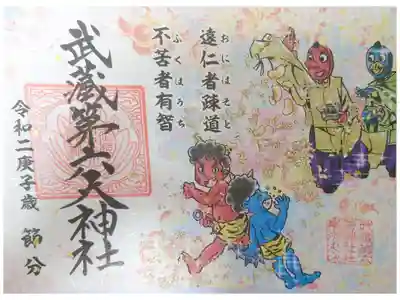 おにはそと
遠仁者疎道
ふくはうち
不苦者有智
武蔵第六天神社
令和二庚子歳 節分